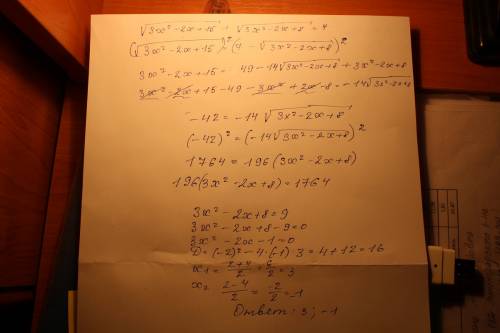 √3x² - 2x + 15 + √3x² - 2x + 8 = 7
(√3x² - 2x + 15)² = (7 - √3x² - 2x + 8)²
3x² - 2x + 15 = 49 - 14√3x² - 2x + 8 + 3x² - 2x + 8
3x² - 2x + 15 - 49 - 3x² + 2x - 8 = -14√3x² - 2x + 8
-42 = -14√3x² - 2x + 8
(-42)² = (-14√3x² - 2x + 8)²
1764 = 196(3x² - 2x + 8)
196(3x² - 2x + 8) = 1764
3x² - 2x + 8 = 9
3x² - 2x + 8 - 9 = 0
3x² - 2x - 1 = 0
D = (-2)² - 4·(-1)·3 = 4 + 12 = 16
x₁ = (2+4)/2 = 6/2 = 3
x₂ = (2-4)/2 = -2/2 = -1
Ответ: 3; -1